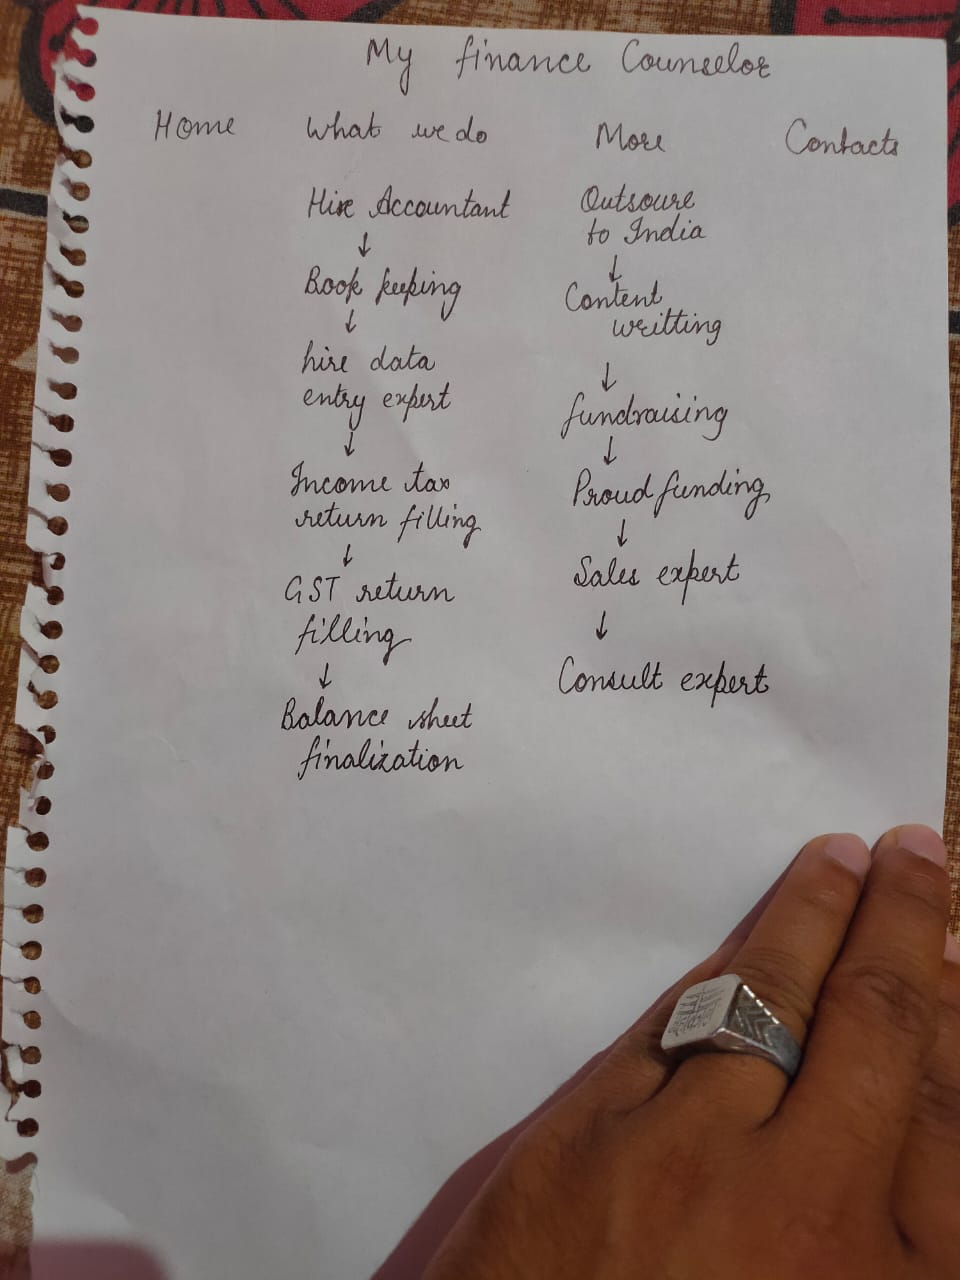 My finance Counselor
Home What we do More Contacts
Hire Accountant
↓
Book keeping
↓
hire data
entry expert
↓
Income tax
return filling
↓
GST return
filling
↓
Balance sheet
finalization
Outsoure
to India
↓
Content
writting
↓
fundraising
↓
Proud funding
↓
Sales expert
↓
Consult expert